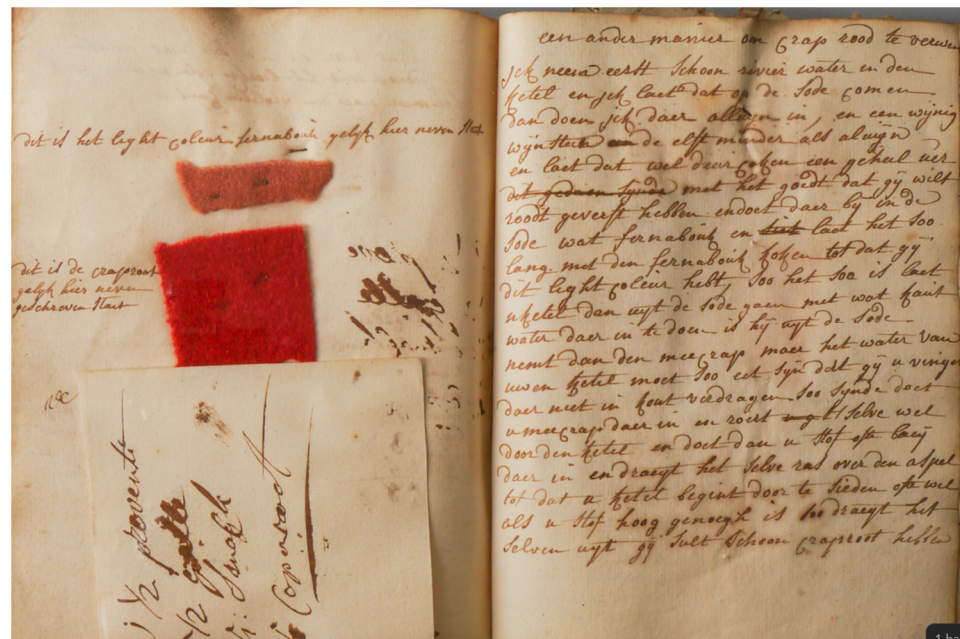 dit is het light coleur fernabouk gelijk hier neven staet
dit is de craproot
gelijk hier neven
geschreven staet
1/2
een ander manier om crap rood te verwen
jck neem eerst schoon rivier water in den
ketel en jck laet dat op de sode comen
dan doen jck daer alluyn in, en een wijnig
wijnsteen de elft minder als aluyn
en laet dat wel deur coken een geheel uer
dit gedaen synde met het goedt dat gij wilt
roodt geverft hebben endoet daer bij in de
sode wat fernabouk en laet het soo
lang met den fernabouk koken tot dat gij
dit light coleur hebt, soo het soo is laet
uketel dan uyt de sode gaen met wat kout
water daer in te doen is hij uyt de sode
nemt dan den meecrap maer het water van
uwen ketel moet soo eet syn dat gij u vinger
daer niet in kont verdragen soo synde doet
u meecrap daer in en roert selve wel
door den ketel en doet dan u stof ofte baeij
daer in en draeyt het selve ras over den aspel
tot dat u ketel begint door te sieden ofte wel
als u stof hoog genoegh is soo draeyt het
selven uyt gij sult schoon craproot hebben